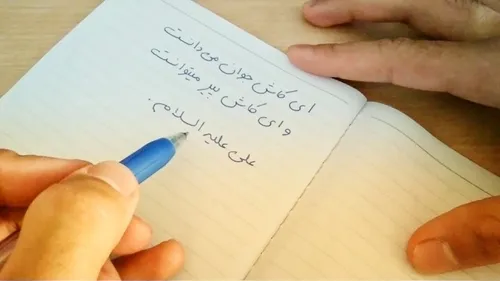 ای کاش جوان می دانست
و ای کاش پیر میتوانست
علی علیه السلام.